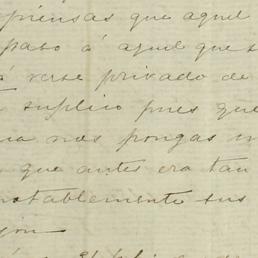 piensas que aquel
paso á aquel que
verse privado de
suplico pues que
nos pongas
que antes era tan
notablemente sus